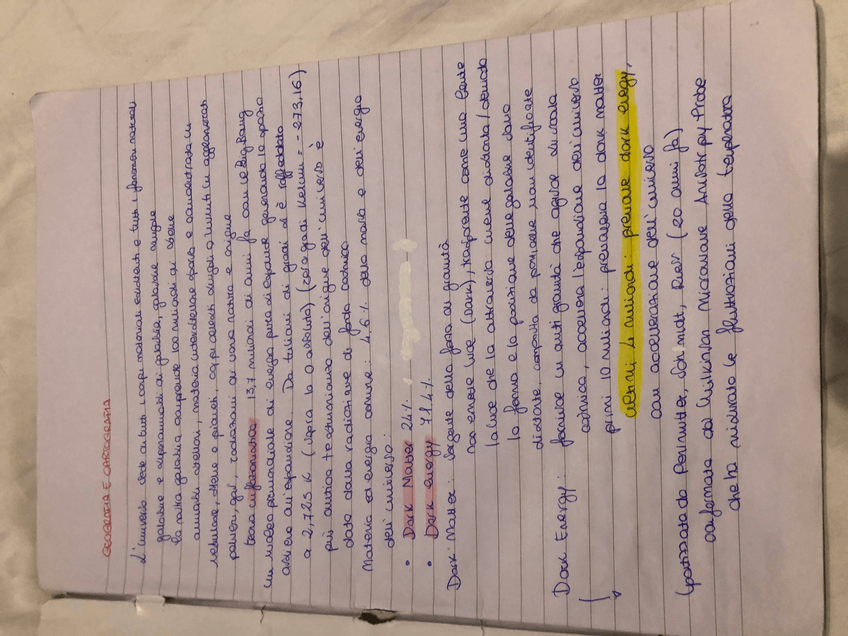 GEOGRAFIA E CARTOGRAFIA
L'universo dato da tutti i corpi materiali esistenti e tutti i fenomeni naturali
galassie e superammassi di galassie, galassie singole
la nostra galassia comprende 100 miliardi di stelle
ammassi stellari, materia interstellare sparsa e concentrata in
nebulose, stelle e pianeti, corpi celesti singoli o riuniti in agglomerati
polveri, gas, radiazioni di varia natura e origine
teoria inflazionistica 13,7 miliardi di anni fa con le Big Bang
un nucleo primordiale di energia pura si espande generando lo spazio
attorno all'espansione. Da trilioni di gradi si è raffreddato
a 2,725 K (sopra lo 0 assoluto) (zero gradi Kelvin = -273,16)
più antica testimonianza dell'origine dell'universo è
data dalla radiazione di fondo cosmico
Materia ed energia comune: 4.6% della massa e dell'energia
dell'universo:
• Dark Matter 24%
• Dark energy 71.4%
Dark Matter: sorgente della forza di gravità
non emette luce (dark), trasparente come una lente
la luce che la attraversa viene distorta/deviata
la forma e la posizione delle galassie sono
distorte, composta da particelle non identificate
Dark Energy: fornisce un anti gravità che agisce su scala
cosmica, accelera l'espansione dell'universo
primi 10 miliardi: prevaleva la dark matter
ultimi 4 miliardi: prevale dark energy,
con accelerazione dell'universo
(ipotizzata da Perlmutter, Schmidt, Riess (20 anni fa)
confermata dal Wilkinson Microwave Anisotropy Probe
che ha misurato le fluttuazioni della temperatura